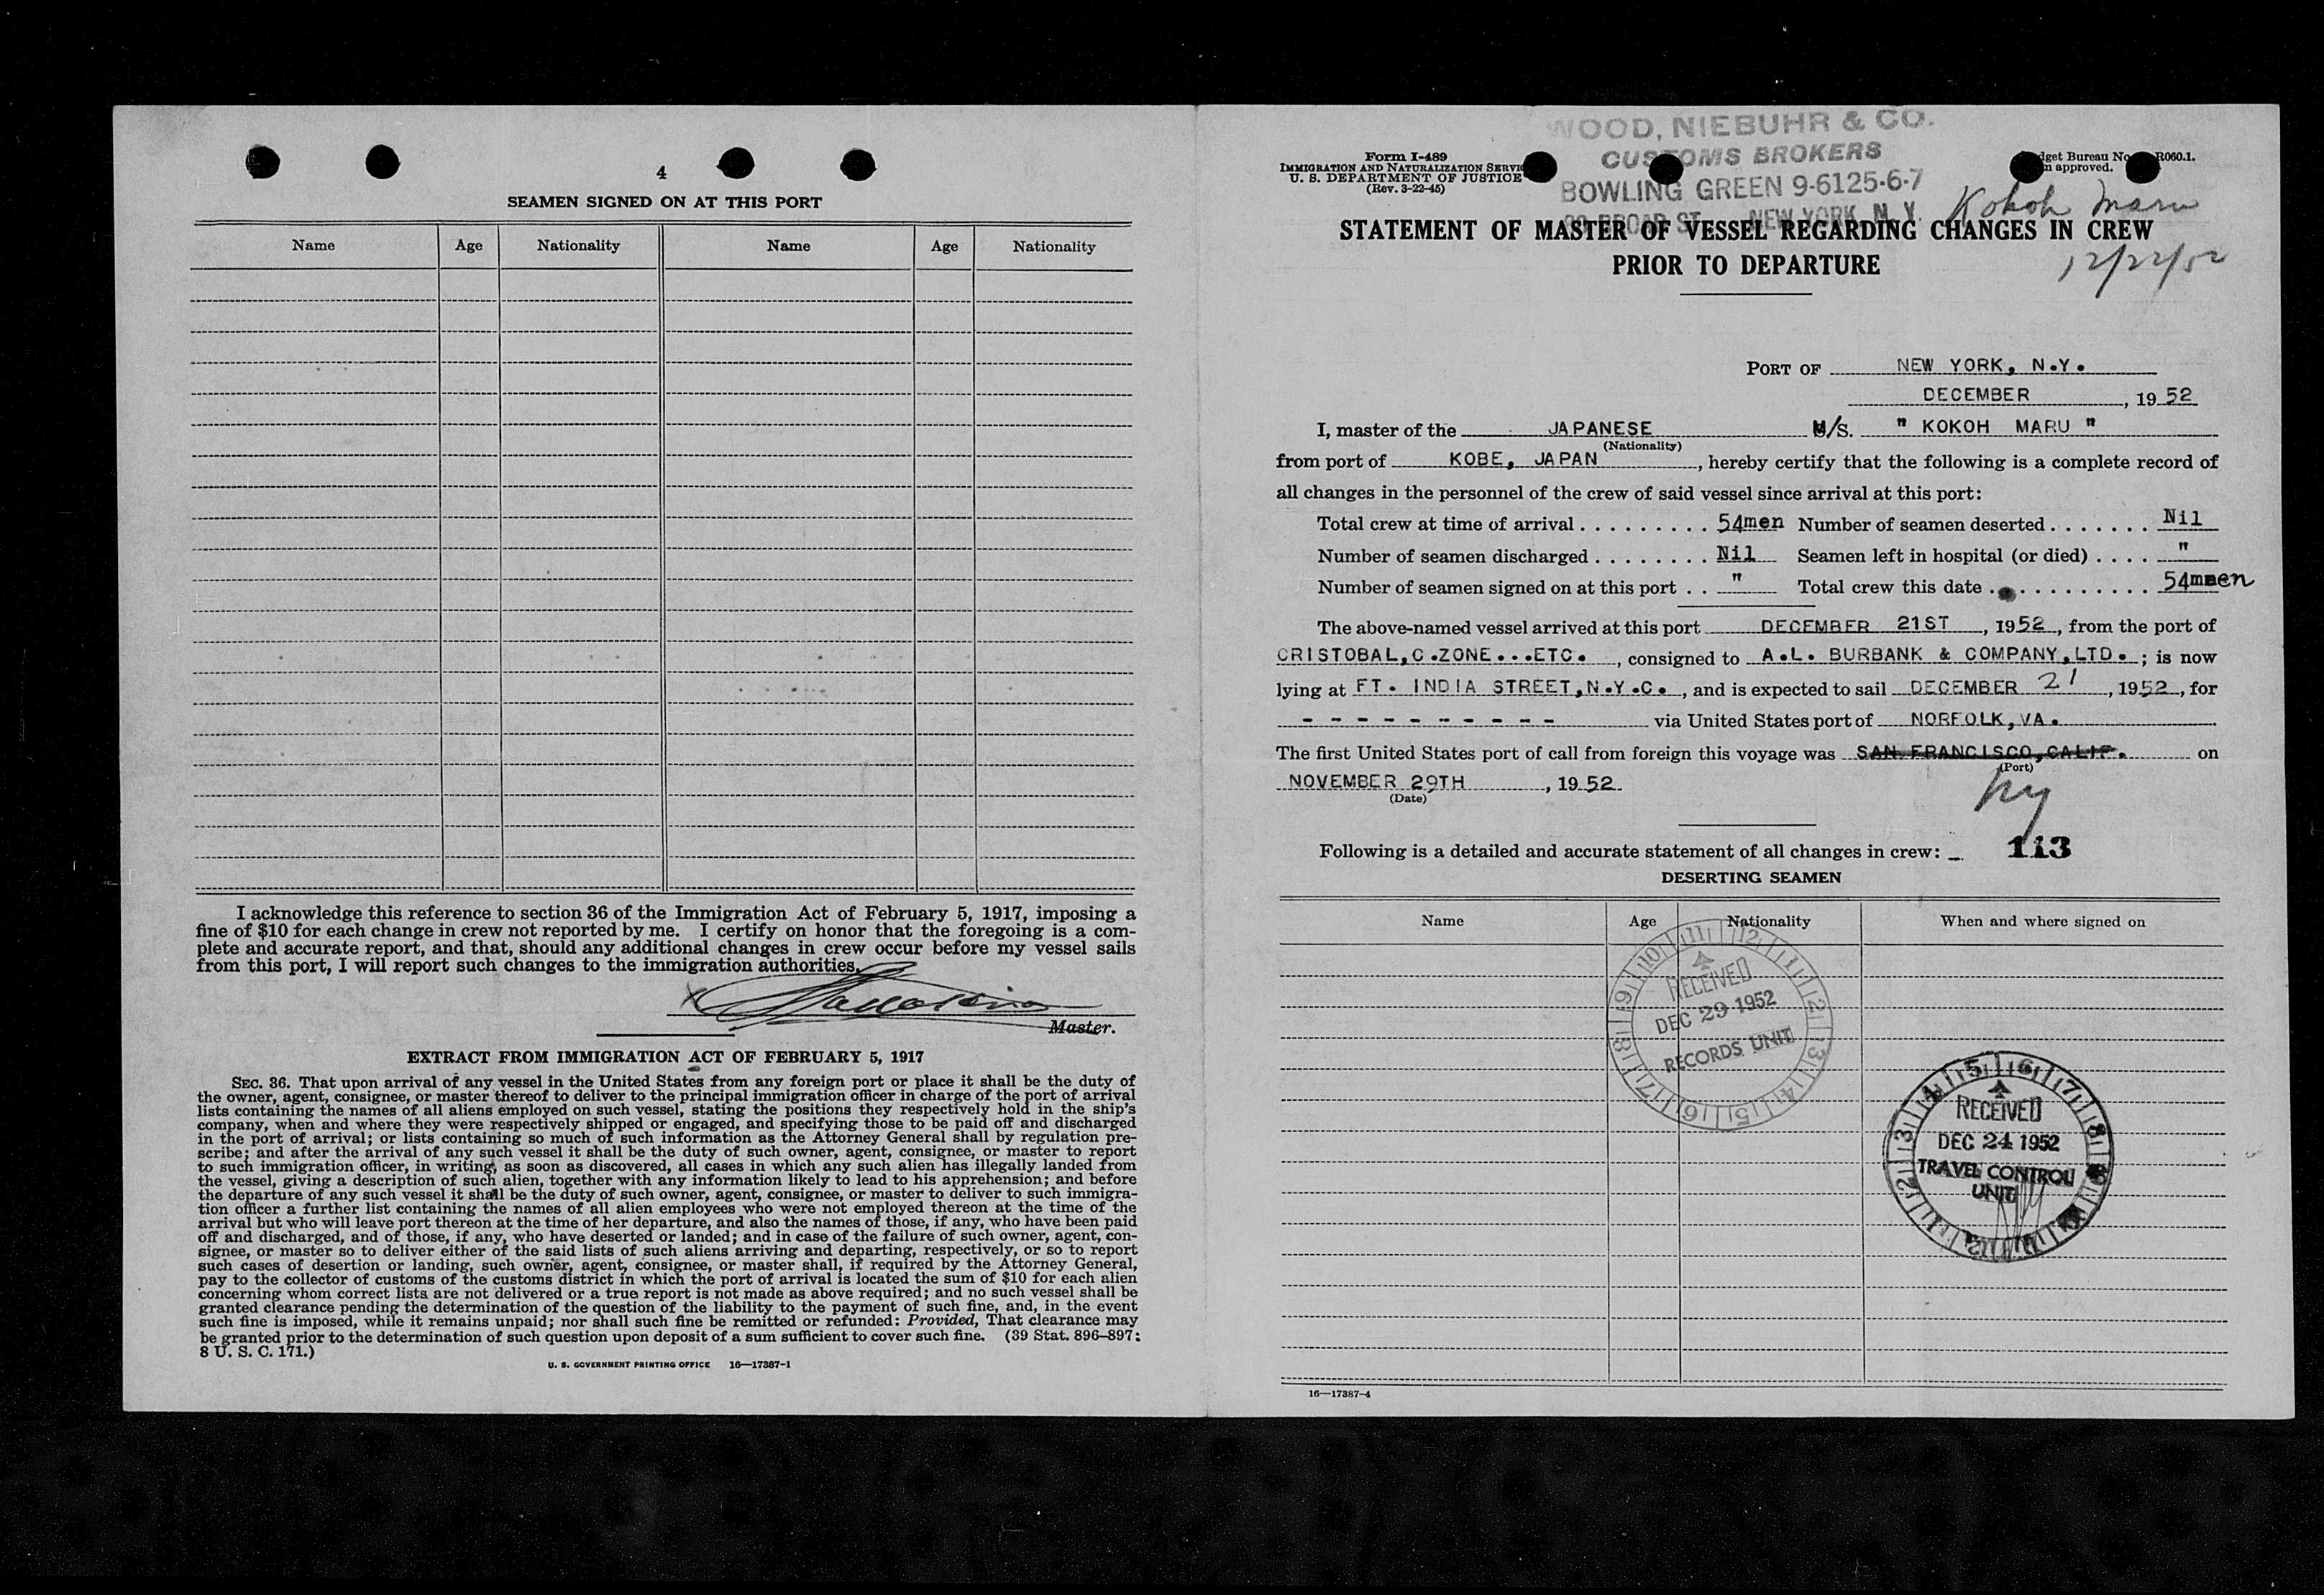 4
SEAMEN SIGNED ON AT THIS PORT
Name Age Nationality Name Age Nationality
I acknowledge this reference to section 36 of the Immigration Act of February 5, 1917, imposing a
fine of $10 for each change in crew not reported by me. I certify on honor that the foregoing is a com-
plete and accurate report, and that, should any additional changes in crew occur before my vessel sails
from this port, I will report such changes to the immigration authorities.
X
Master.
EXTRACT FROM IMMIGRATION ACT OF FEBRUARY 5, 1917
SEC. 36. That upon arrival of any vessel in the United States from any foreign port or place it shall be the duty of
the owner, agent, consignee, or master thereof to deliver to the principal immigration officer in charge of the port of arrival
lists containing the names of all aliens employed on such vessel, stating the positions they respectively hold in the ship's
company, when and where they were respectively shipped or engaged, and specifying those to be paid off and discharged
in the port of arrival; or lists containing so much of such information as the Attorney General shall by regulation pre-
scribe; and after the arrival of any such vessel it shall be the duty of such owner, agent, consignee, or master to report
to such immigration officer, in writing, as soon as discovered, all cases in which any such alien has illegally landed from
the vessel, giving a description of such alien, together with any information likely to lead to his apprehension; and before
the departure of any such vessel it shall be the duty of such owner, agent, consignee, or master to deliver to such immigra-
tion officer a further list containing the names of all alien employees who were not employed thereon at the time of the
arrival but who will leave port thereon at the time of her departure, and also the names of those, if any, who have been paid
off and discharged, and of those, if any, who have deserted or landed; and in case of the failure of such owner, agent, con-
signee, or master so to deliver either of the said lists of such aliens arriving and departing, respectively, or so to report
such cases of desertion or landing, such owner, agent, consignee, or master shall, if required by the Attorney General,
pay to the collector of customs of the customs district in which the port of arrival is located the sum of $10 for each alien
concerning whom correct lists are not delivered or a true report is not made as above required; and no such vessel shall be
granted clearance pending the determination of the question of the liability to the payment of such fine, and, in the event
such fine is imposed, while it remains unpaid; nor shall such fine be remitted or refunded: Provided, That clearance may
be granted prior to the determination of such question upon deposit of a sum sufficient to cover such fine. (39 Stat. 896–897;
8 U. S. C. 171.)
U. S. GOVERNMENT PRINTING OFFICE 16—17387-1
WOOD, NIEBUHR & CO.
CUSTOMS BROKERS
BOWLING GREEN 9-6125-6-7
BROAD ST. NEW YORK, N. Y.
Form I-489
IMMIGRATION AND NATURALIZATION
U. S. DEPARTMENT OF JUSTICE
(Rev. 3-22-45)
Bureau No. R060.1.
approved.
Kokoh Maru
12/22/52
STATEMENT OF MASTER OF VESSEL REGARDING CHANGES IN CREW
PRIOR TO DEPARTURE
PORT OF NEW YORK, N.Y.
DECEMBER , 19 52
I, master of the JAPANESE M/S. " KOKOH MARU "
(Nationality)
from port of KOBE, JAPAN , hereby certify that the following is a complete record of
all changes in the personnel of the crew of said vessel since arrival at this port:
Total crew at time of arrival . . . . . . . . . 54men Number of seamen deserted . . . . . . . Nil
Number of seamen discharged . . . . . . . . Nil Seamen left in hospital (or died) . . . . "
Number of seamen signed on at this port . . " Total crew this date . . . . . . . . . . . 54mmen
The above-named vessel arrived at this port DECEMBER 21ST , 1952 , from the port of
CRISTOBAL,C.ZONE...ETC. , consigned to A.L. BURBANK & COMPANY,LTD. ; is now
lying at FT. INDIA STREET,N.Y.C. , and is expected to sail DECEMBER 21 , 1952 , for
- - - - - - - - - - via United States port of NORFOLK,VA.
The first United States port of call from foreign this voyage was SAN FRANCISCO,CALIF. on
(Port)
NOVEMBER 29TH , 19 52
(Date)
ny
Following is a detailed and accurate statement of all changes in crew: 113
DESERTING SEAMEN
Name Age Nationality When and where signed on
11 12 1 2 3 4 5 6 7 8 9 10
RECEIVED
DEC 29 1952
RECORDS UNIT
RECEIVED
DEC 24 1952
TRAVEL CONTROL
UNIT
16—17387-4